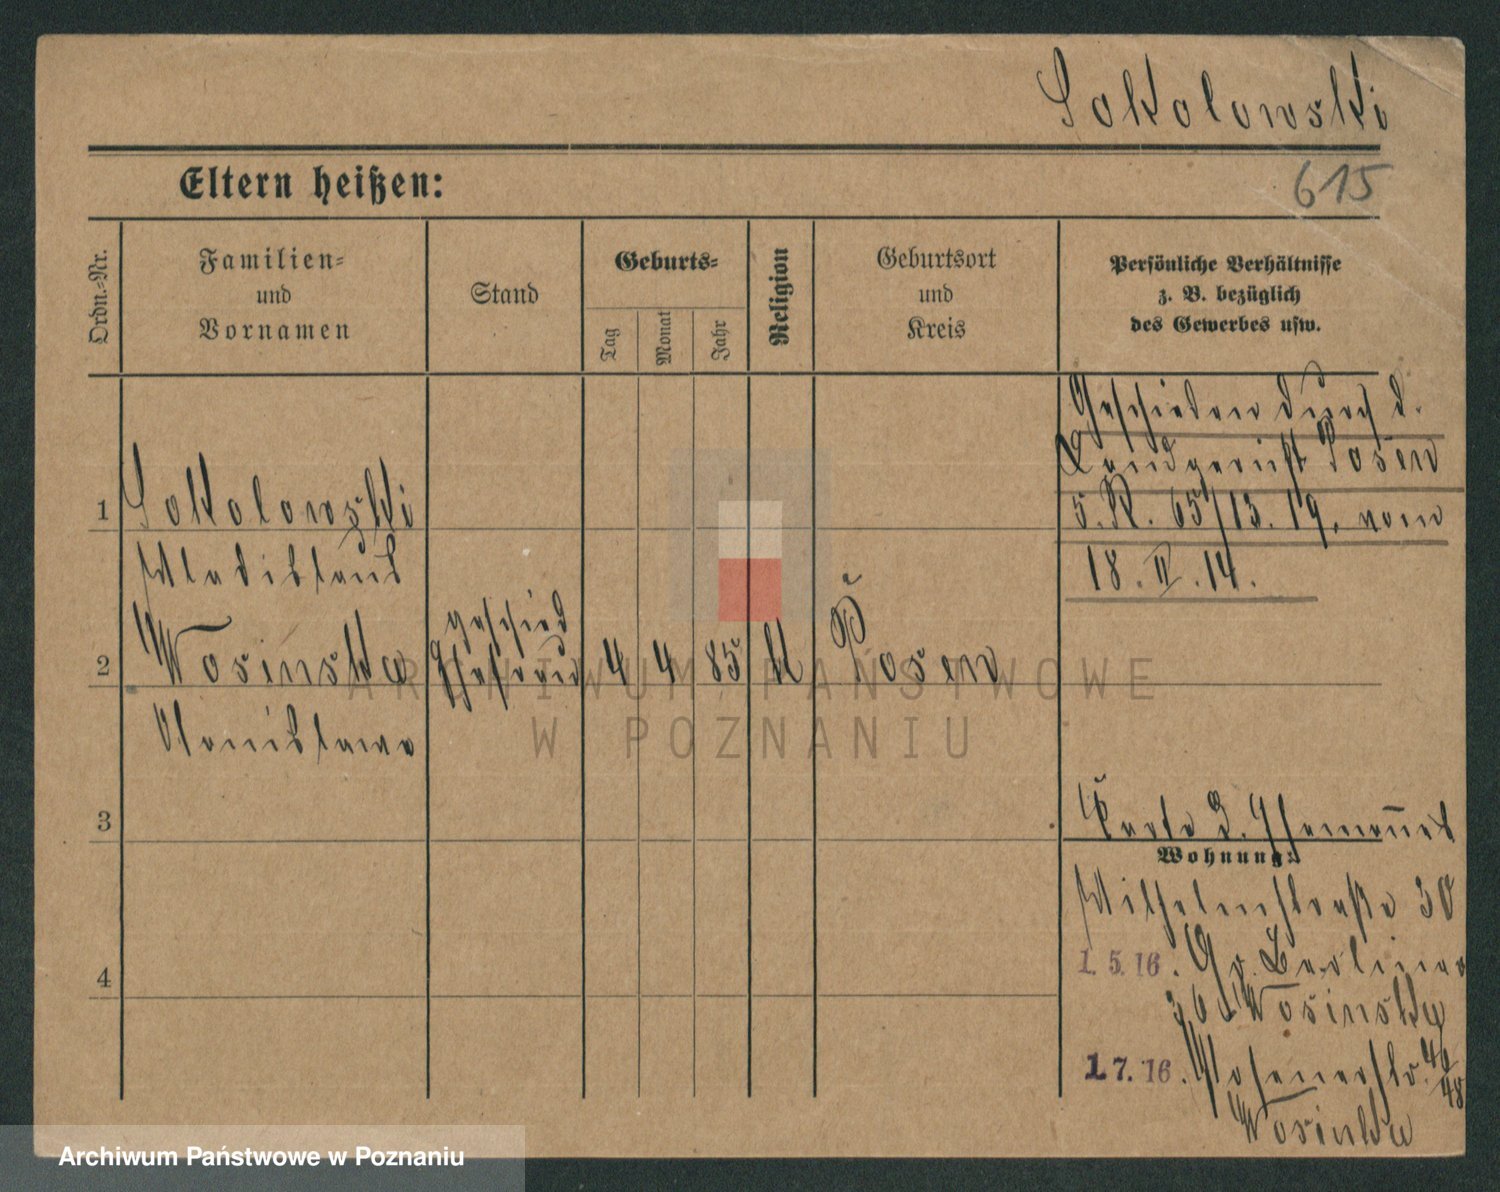 Sokolowski
615
Eltern heißen:
Ordn.-Nr.
Familien-
und
Vornamen
Stand
Geburts-
Tag
Monat
Jahr
Religion
Geburtsort
und
Kreis
Persönliche Verhältnisse
z. B. bezüglich
des Gewerbes usw.
Geschieden durch d.
Landgericht Posen
5. R. 65/13. 19. vom
18. II. 14.
1
Sokolowski
Wladislaus
2
Wosinska
geschied
Ehefrau
4
4
85
k
Posen
Stanislawa
3
Karte
Wohnung:
Wilhelmstraße 30
1. 5. 16. Gr. Berliner
Wosinska
4
1. 7. 16. Posenerstr. 46/48
Wosinska
ARCHIWUM PAŃSTWOWE
W POZNANIU
Archiwum Państwowe w Poznaniu